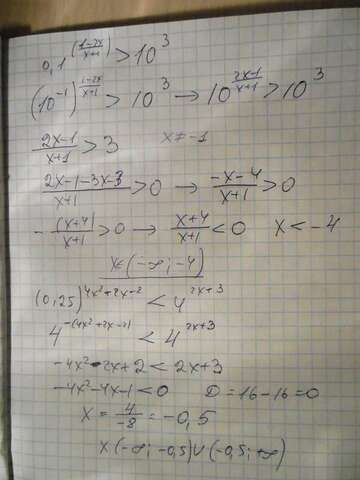 0,1^((1-2x)/(x+1)) > 10^3
(10^-1)^((1-2x)/(x+1)) > 10^3 → 10^((2x-1)/(x+1)) > 10^3
(2x-1)/(x+1) > 3 x ≠ -1
(2x-1-3x-3)/(x+1) > 0 → (-x-4)/(x+1) > 0
-(x+4)/(x+1) > 0 → (x+4)/(x+1) < 0 x < -4
x∈(-∞; -4)
(0,25)^(4x²+2x-2) < 4^(2x+3)
4^(-(4x²+2x-2)) < 4^(2x+3)
-4x²-2x+2 < 2x+3
-4x²-4x-1 < 0 D = 16-16 = 0
x = 4/-8 = -0,5
x(-∞; -0,5)∪(-0,5; +∞)